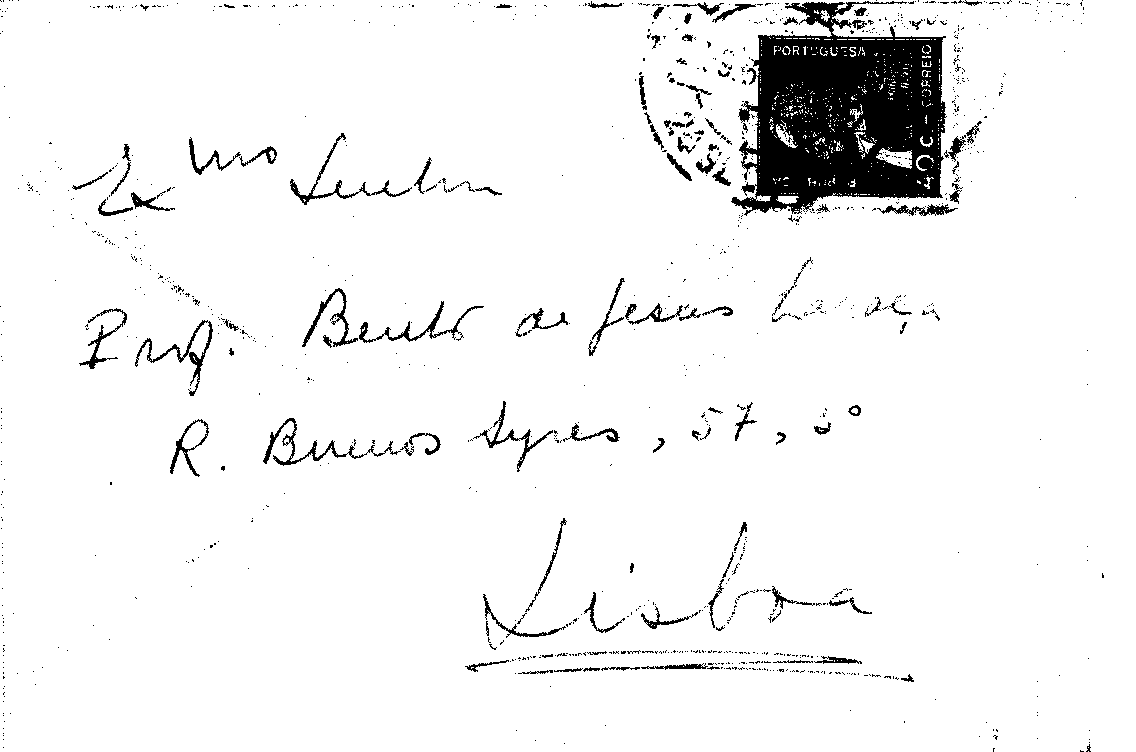 PORTUGUESA
CORREIO
40 C
Exmo Senhor
Prof. Bento de Jesus Caraça
R. Buenos Ayres, 57, 3º
Lisboa